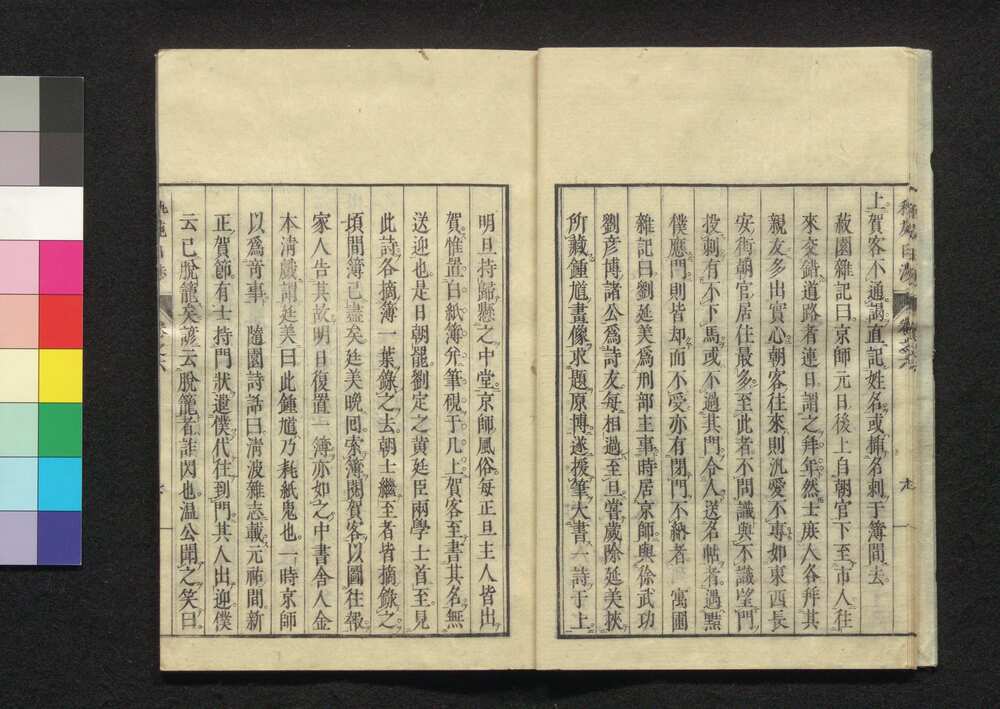 上。賀客不通謁。直記姓名。或揷名刺于簿間。去
菽園雜記曰。京師元日後。上自朝官。下至市人。往
來交錯道路者連日。謂之拜年。然士庶人各拜其
親友。多出實心。朝客往來。則汎愛不專。如東西長
安街。朝官居住最多。至此者不問識與不識。望門
投刺。有不下馬。或不過其門。令人送名帖者。遇黠
僕應門。則皆却而不受。亦有閉門不納者。 寓圃
雜記曰。劉廷美爲刑部主事時。居京師。與徐武功
劉彥博諸公爲詩友。每相過。至旦嘗歲除。延美挾
所藏鍾馗畫像求題。原博遂援筆大書一詩于上。
明旦持歸。懸之中堂。京師風俗。每正旦主人皆出
賀。惟置白紙簿幷筆硯于几上。賀客至書其名。無
送迎也。是日朝罷。劉定之黄廷臣兩學士首至。見
此詩。各摘簿一葉錄之去。朝士繼至者皆摘錄之。
頃間簿已盡矣。廷美晚回。索簿閱賀客。以圖往報。
家人告其故。明日復置一簿。亦如之。中書舍人金
本淸戲謂廷美曰。此鍾馗乃耗紙鬼也。一時京師
以爲奇事。 隨園詩話曰。淸波雜志載。元祐間新
正賀節。有士持門狀遣僕代往。到門。其人出迎。僕
云已脫籠矣。諺云脫籠者詐閃也。溫公聞之笑曰。